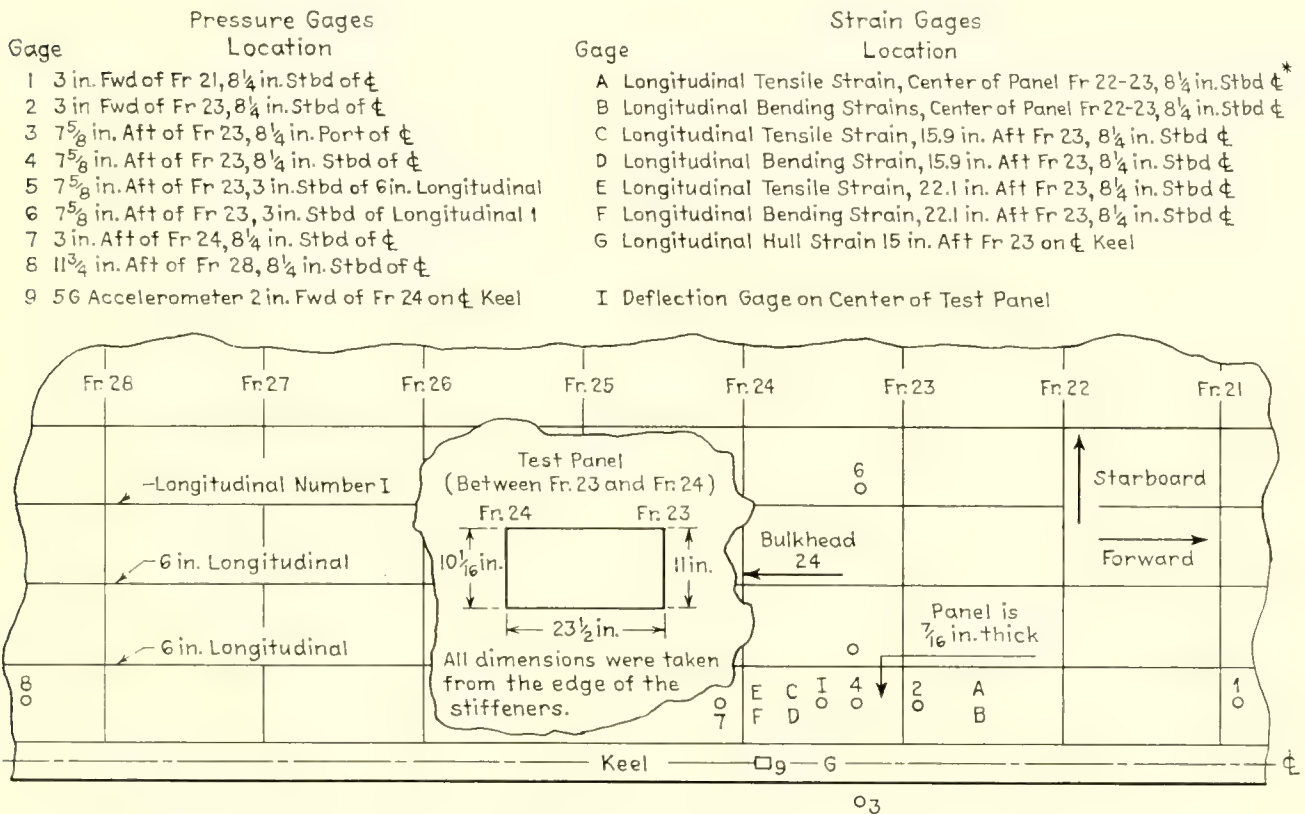 Pressure Gages
Gage Location
1 3 in. Fwd of Fr 21, 8¼ in. Stbd of ℄
2 3 in Fwd of Fr 23, 8¼ in. Stbd of ℄
3 7⅝ in. Aft of Fr 23, 8¼ in. Port of ℄
4 7⅝ in. Aft of Fr 23, 8¼ in. Stbd of ℄
5 7⅝ in. Aft of Fr 23, 3 in. Stbd of 6 in. Longitudinal
6 7⅝ in. Aft of Fr 23, 3 in. Stbd of Longitudinal 1
7 3 in. Aft of Fr 24, 8¼ in. Stbd of ℄
8 11¾ in. Aft of Fr 28, 8¼ in. Stbd of ℄
9 5G Accelerometer 2 in. Fwd of Fr 24 on ℄ Keel
Strain Gages
Gage Location
A Longitudinal Tensile Strain, Center of Panel Fr 22-23, 8¼ in. Stbd ℄*
B Longitudinal Bending Strains, Center of Panel Fr 22-23, 8¼ in. Stbd ℄
C Longitudinal Tensile Strain, 15.9 in. Aft Fr 23, 8¼ in. Stbd ℄
D Longitudinal Bending Strain, 15.9 in. Aft Fr 23, 8¼ in. Stbd ℄
E Longitudinal Tensile Strain, 22.1 in. Aft Fr 23, 8¼ in. Stbd ℄
F Longitudinal Bending Strain, 22.1 in. Aft Fr 23, 8¼ in. Stbd ℄
G Longitudinal Hull Strain 15 in. Aft Fr 23 on ℄ Keel
I Deflection Gage on Center of Test Panel
Fr. 28 Fr. 27 Fr. 26 Fr. 25 Fr. 24 Fr. 23 Fr. 22 Fr. 21
Longitudinal Number I
6 in. Longitudinal
6 in. Longitudinal
Test Panel
(Between Fr. 23 and Fr. 24)
Fr. 24 Fr. 23
10 1/16 in. 11 in.
23½ in.
All dimensions were taken
from the edge of the
stiffeners.
6
Bulkhead
24
Starboard
Forward
Panel is
7/16 in. thick
8
7
E C I 4 2 A 1
F D B
Keel 9 G ℄
3